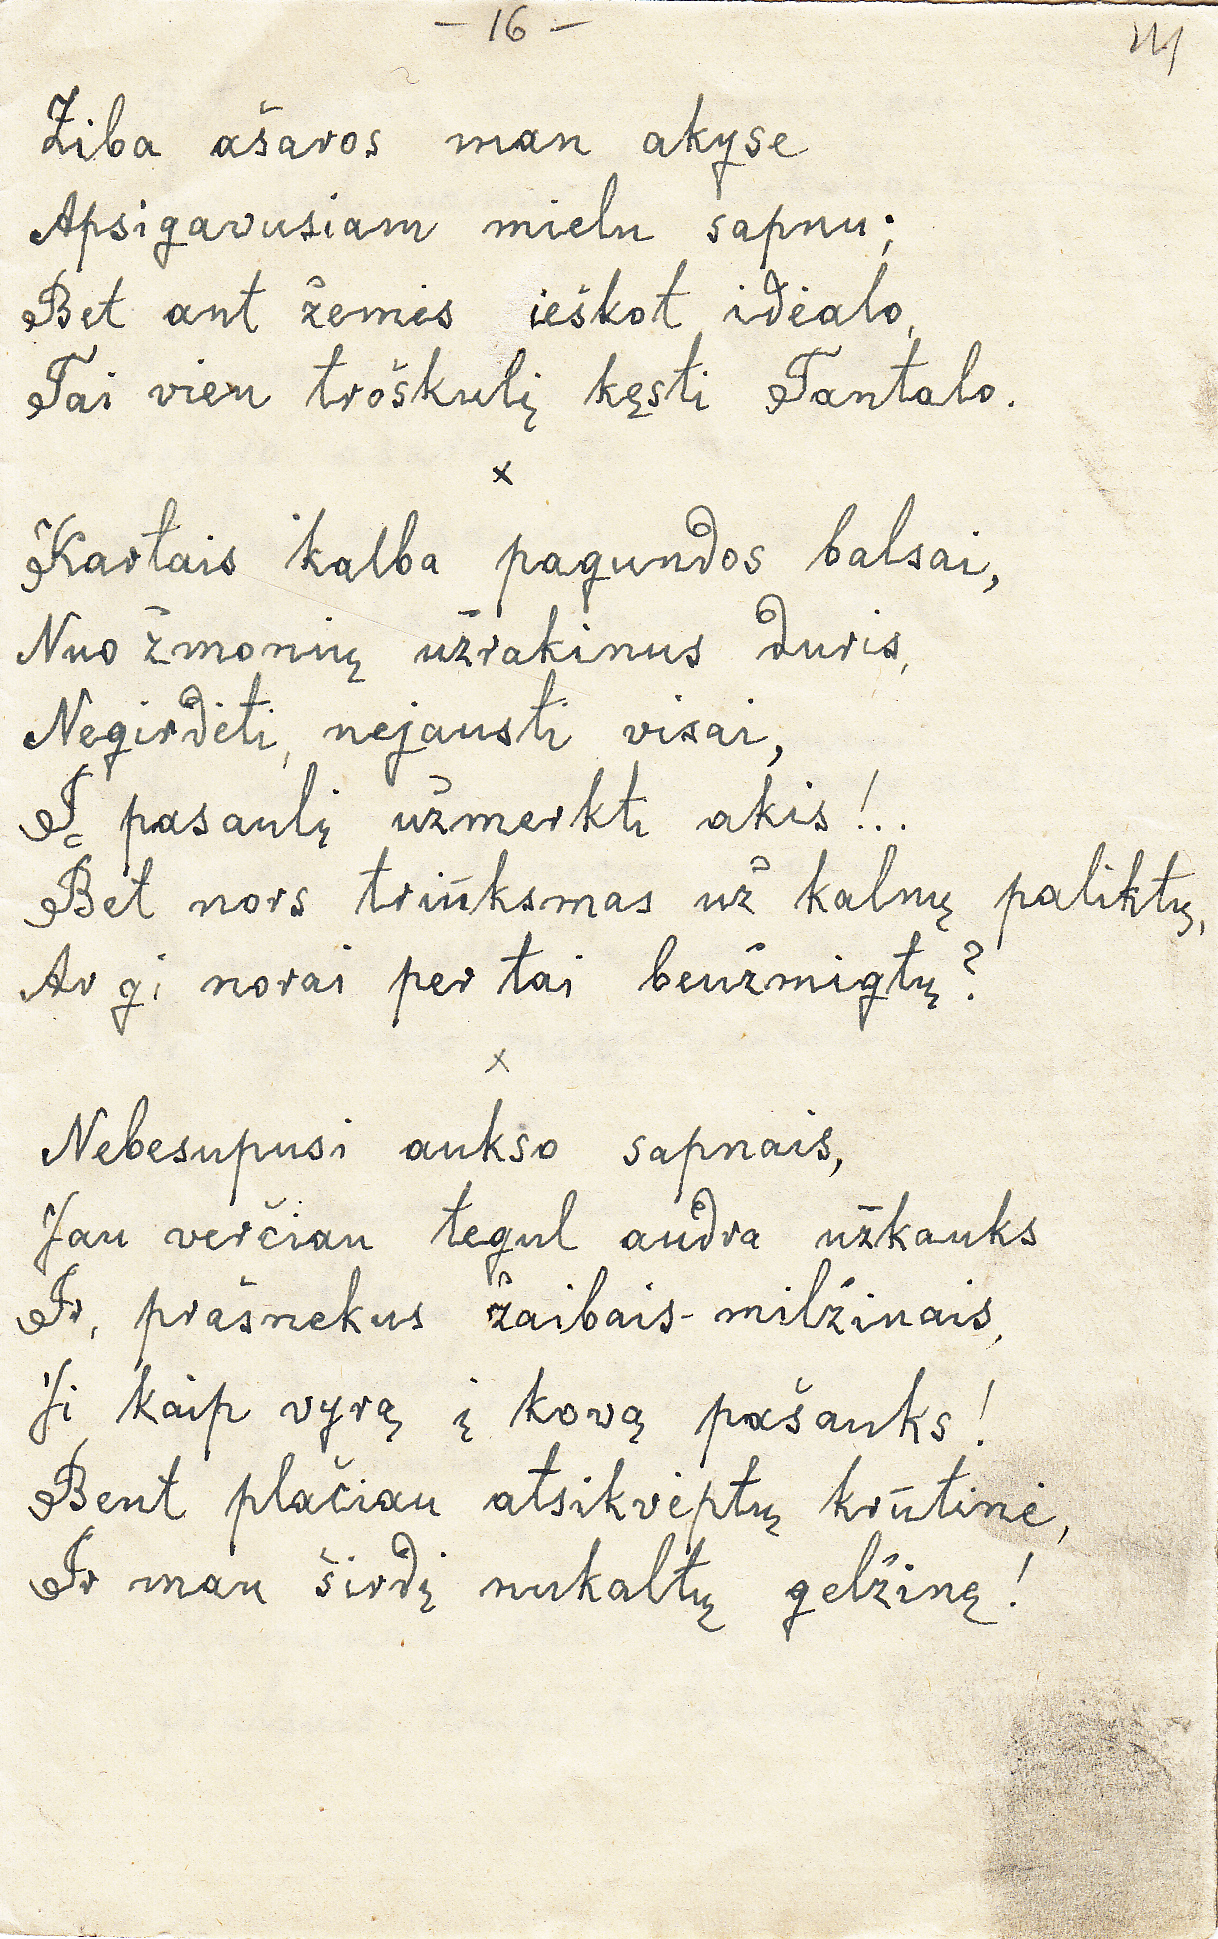 - 16 -
Žiba ašaros man akyse
Apsigavusiam mielu sapnu;
Bet ant žemės ieškot idėalo,
Tai vien troškulį kęsti Tantalo.
x
Kartais kalba pagundos balsai,
Nuo žmonių užrakinus duris,
Negirdėti, nejausti visai,
Į pasaulį užmerkti akis!..
Bet nors triūksmas už kalnų paliktų,
Ar gi norai per tai beužmigtų?
x
Nebesupusi aukso sapnais,
Jau verčiau tegul audra užkauks
Ir, prašnekus žaibais-milžinais,
Ji kaip vyrą į kovą pašauks!
Bent plačiau atsikvėptų krūtinė,
Ir man širdį nukaltų gelžinę!